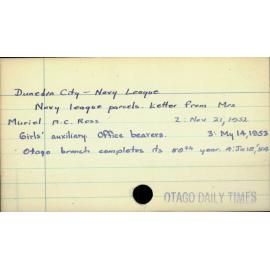 Dunedin City - Navy League
Navy league parcels. Letter from Mrs
Muriel M.C. Ross 2: Nov 21, 1952
Girls' auxiliary. Office bearers. 3: My 14, 1953
Otago branch completes its 50th year. 4: Je 18, '54
OTAGO DAILY TIMES